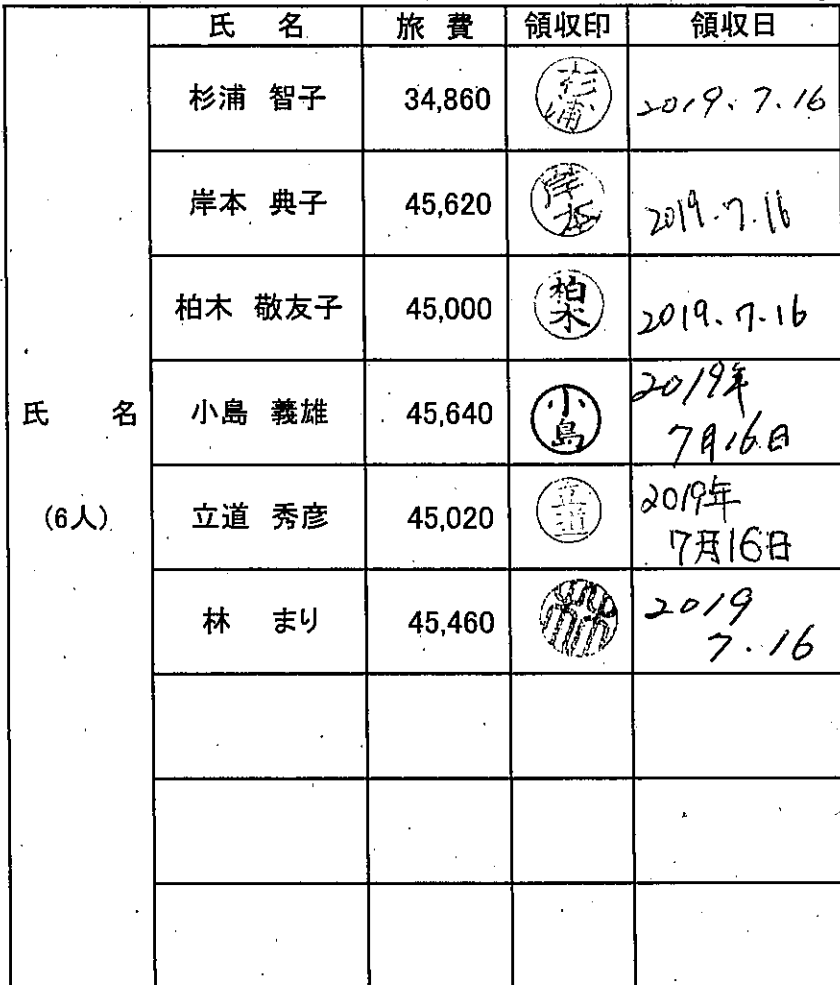 氏 名 旅 費 領収印 領収日
杉浦 智子 34,860 杉浦 2019.7.16
岸本 典子 45,620 岸本 2019.7.16
柏木 敬友子 45,000 柏木 2019.7.16
氏 名 小島 義雄 45,640 小島 2019年
7月16日
(6人) 立道 秀彦 45,020 立道 2019年
7月16日
林 まり 45,460 林 2019
7.16